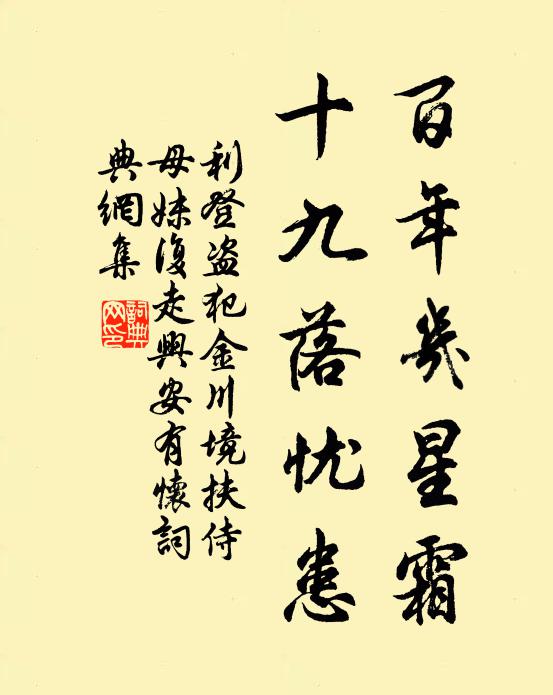 百年幾星霜
十九落忧患
利登盗犯金川境扶侍
母妹復走興安有懷詞
典網集
詞典
网印